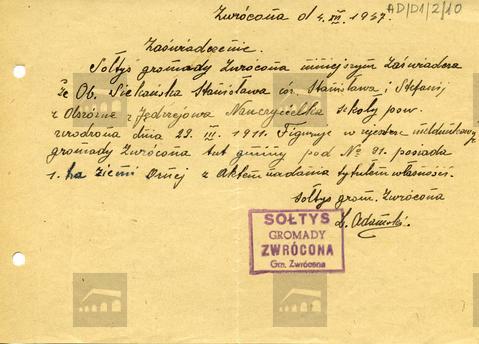 AD/D1/2/10
Zwrócona d 4.XII. 1947.
Zaświadczenie.
Sołtys gromady Zwrócona niniejszym zaświadcza
że Ob. Siekańska Stanisława có. Stanisława i Stefanji
z Jędrzejowa Nauczycielka szkoły pow.
urodzona dnia 29. III. 1911. Figuruje w rejestrze
gromady Zwrócona tut gminy pod No 91. posiada
1. ha ziemi Ornej z Aktem nadania tytułem własności.
Sołtys grom. Zwrócona
Adamski.
SOŁTYS
GROMADY
ZWRÓCONA
Gm. Zwrócona